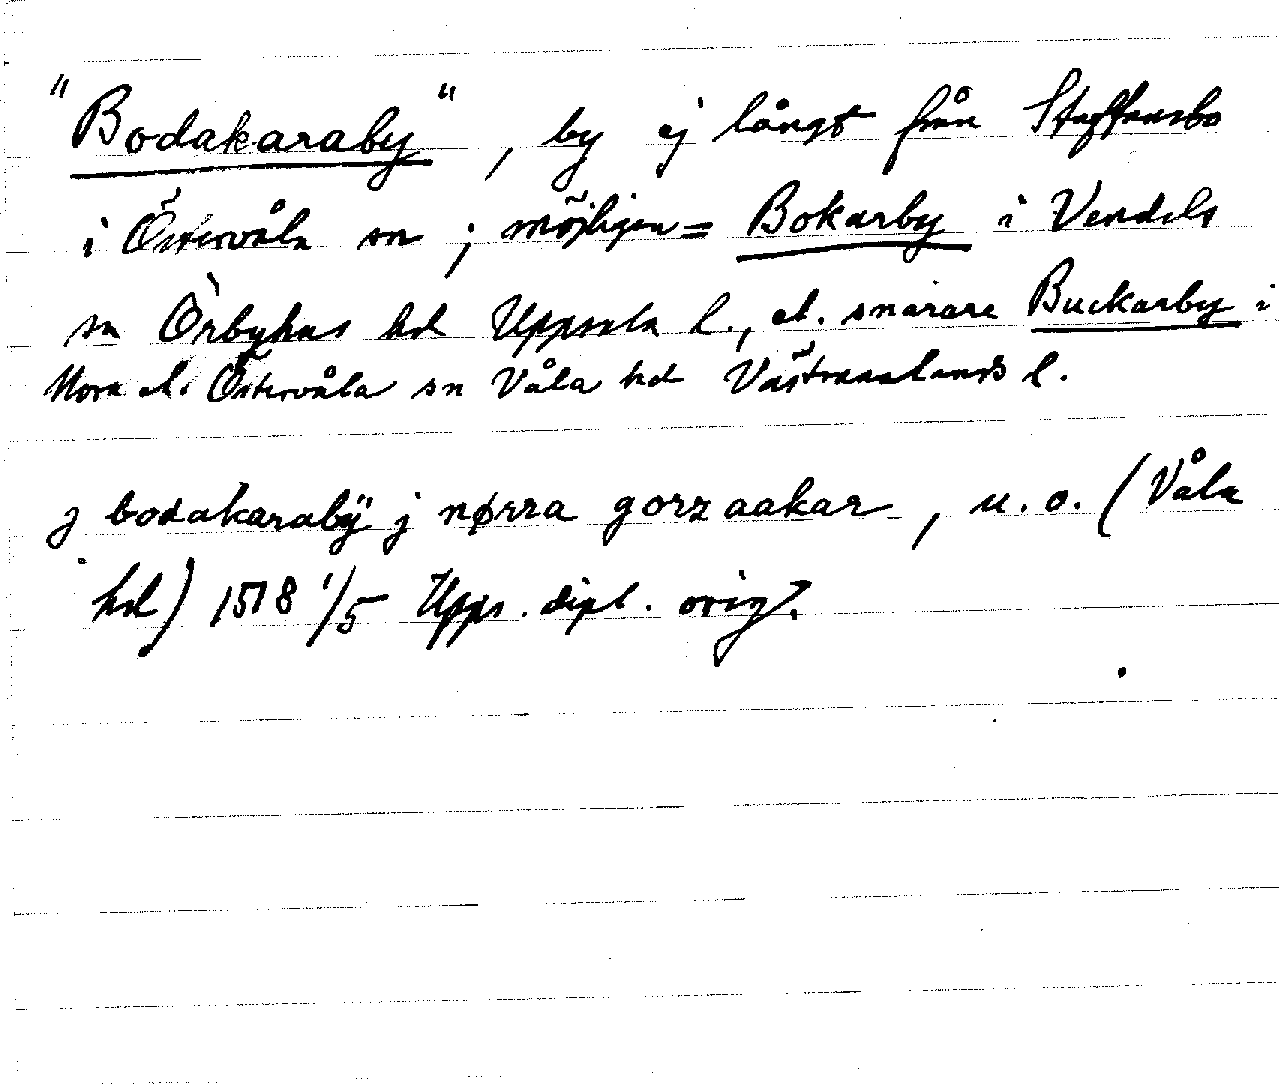 "Bodakaraby", by ej långt från Staffansbo
i Östervåla sn; möjligen = Bokarby i Vendels
sn Örbyhus hd Uppsala l., el. snarare Buckarby i
Nora el. Östervåla sn Våla hd Västmanlands l.
j bodakarabÿ j nørra gorzaakar, u. o. (Våla
hd) 1518 1/5 Upps. dipl. orig.